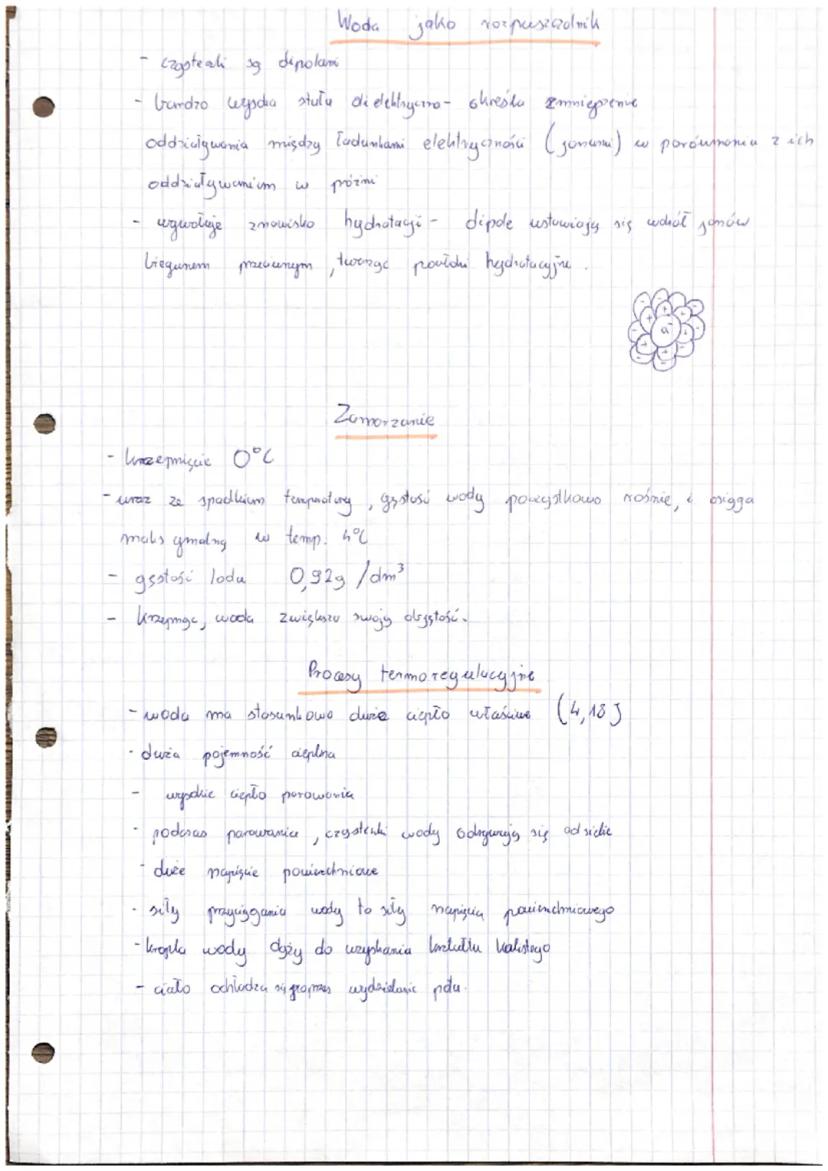 Woda jako rozpuszczalnik
- cząsteczki są dipolami
- bardzo wysoka stała dielektryczna - określa zmniejszenie
oddziaływania między ładunkami elektryczności (jonami) w porównaniu z ich
oddziaływaniem w próżni
- wywołuje zjawisko hydratacji - dipole ustawiają się wokół jonów
biegunem przeciwnym, tworząc powłoki hydratacyjne.
Zamarzanie
- krzepnięcie 0°C
- wraz ze spadkiem temperatury, gęstość wody początkowo rośnie, i osiąga
maksymalną w temp. 4°C
- gęstość lodu 0,92g/dm³
- krzepnąc, woda zwiększa swoją objętość.
Procesy termoregulacyjne
- woda ma stosunkowo duże ciepło właściwe (4,18J
- duża pojemność cieplna
- wysokie ciepło parowania
- podczas parowania, cząsteczki wody odrywają się od siebie
- duże napięcie powierzchniowe
- siły przyciągania wody to siły napięcia powierzchniowego
- kropla wody dąży do uzyskania kształtu kulistego
- ciało ochładza się poprzez wydzielanie potu.